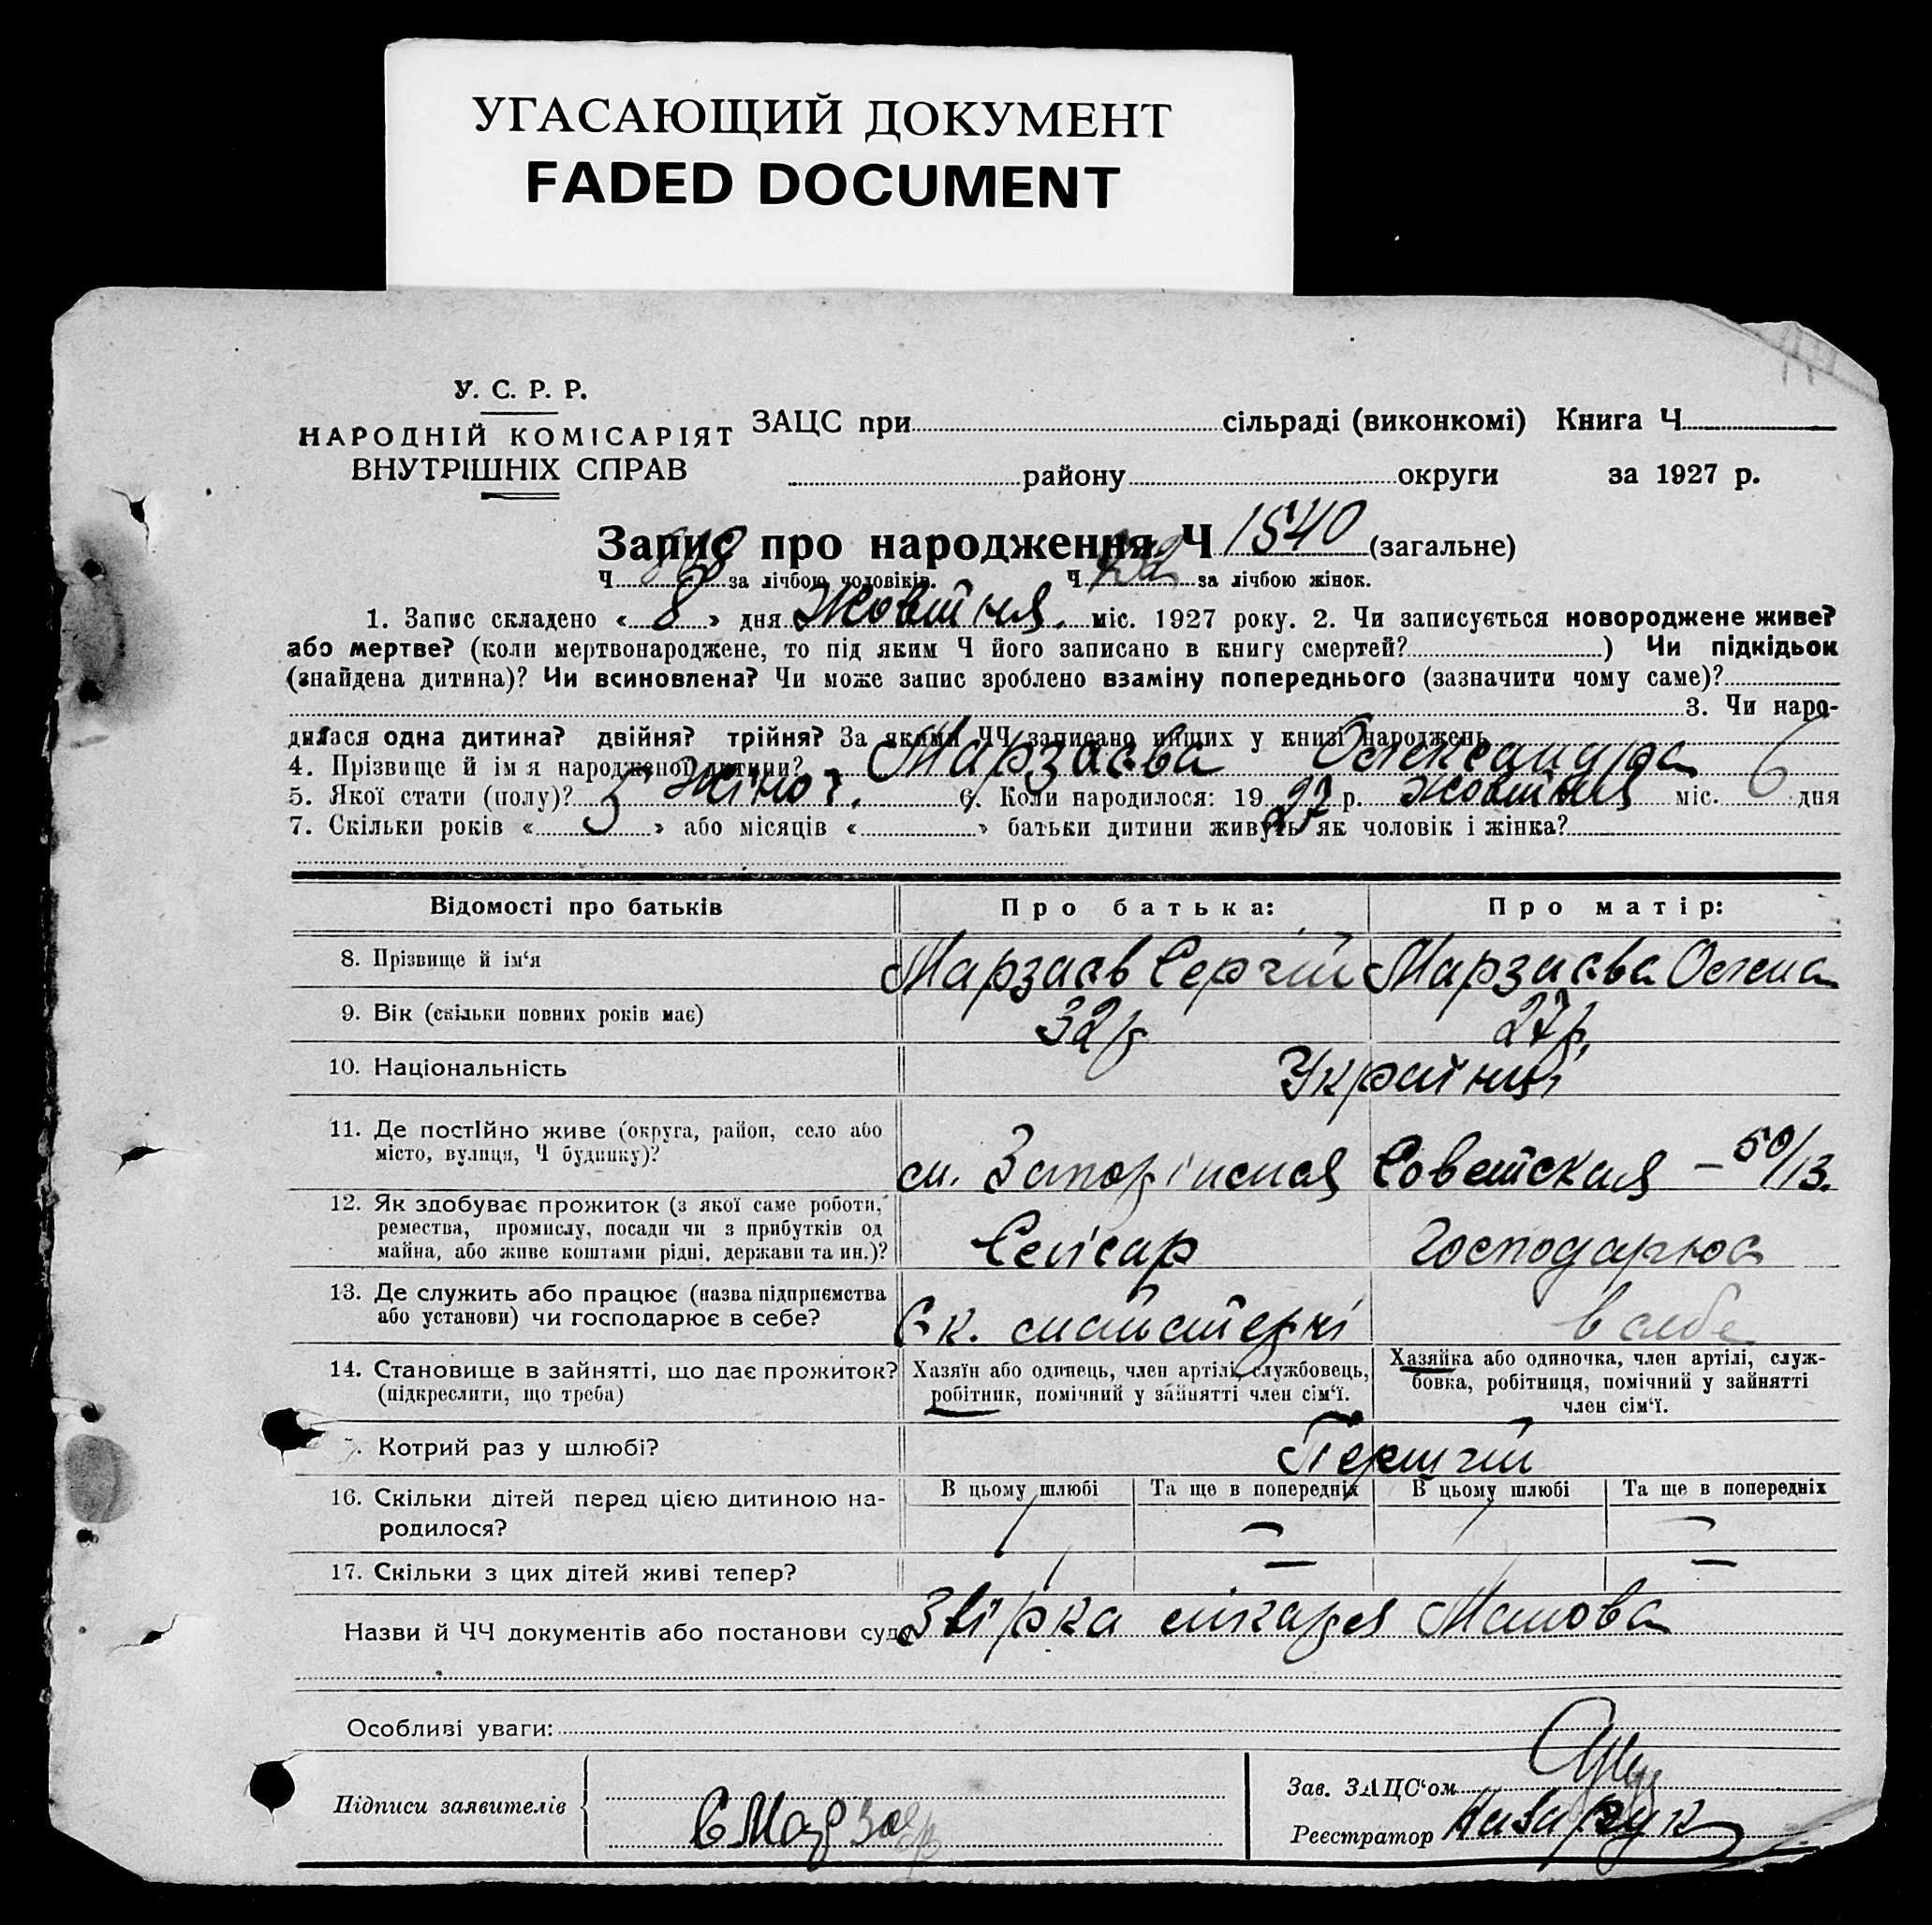 УГАСАЮЩИЙ ДОКУМЕНТ
FADED DOCUMENT
У. С. Р. Р.
НАРОДНІЙ КОМІСАРІЯТ
ВНУТРІШНІХ СПРАВ
ЗАЦС при сільраді (виконкомі) Книга Ч
району округи за 1927 р.
Запис про народження Ч 1540 (загальне)
Ч за лічбою чоловіків. Ч за лічбою жінок.
1. Запис складено « 8 » дня Жовтня. міс. 1927 року. 2. Чи записується новороджене живе?
або мертве? (коли мертвонароджене, то під яким Ч його записано в книгу смертей? ) Чи підкідьок
(знайдена дитина)? Чи всиновлена? Чи може запис зроблено взаміну попереднього (зазначити чому саме)?
3. Чи наро-
дилася одна дитина? двійня? трійня? За якими ЧЧ записано инших у книзі народжень
4. Прізвище й ім я народженої дитини? Марзаєва Олександра
5. Якої стати (полу)? Жіноч. 6. Коли народилося: 19 27 р. Жовтня міс. 6 дня
7. Скільки років « 5 » або місяців « » батьки дитини живуть як чоловік і жінка?
Відомості про батьків
Про батька:
Про матір:
8. Прізвище й ім‘я
Марзаєв Сергій
Марзаєва Олена
9. Вік (скільки повних років має)
32 р
27 р.
10. Національність
Українці
11. Де постійно живе (округа, район, село або
місто, вулиця, Ч будинку)?
Советская – 50/13.
12. Як здобуває прожиток (з якої саме роботи,
ремества, промислу, посади чи з прибутків од
майна, або живе коштами рідні, держави та ин.)?
Слюсар
Господарює
13. Де служить або працює (назва підприємства
або установи) чи господарює в себе?
Єк. майстерні
в себе
14. Становище в зайнятті, що дає прожиток?
(підкреслити, що треба)
Хазяїн або одинець, член артілі, службовець,
робітник, помічний у зайнятті член сім‘ї.
Хазяйка або одиночка, член артілі, служ-
бовка, робітниця, помічний у зайнятті
член сім‘ї.
Котрий раз у шлюбі?
Перший
16. Скільки дітей перед цією дитиною на-
родилося?
В цьому шлюбі
Та ще в попередніх
В цьому шлюбі
Та ще в попередніх
1 — 1 —
17. Скільки з цих дітей живі тепер?
1 — 1 —
Назви й ЧЧ документів або постанови суду Звірка лікаря
Особливі уваги:
Підписи заявителів
Зав. ЗАЦС‘ом
Реєстратор